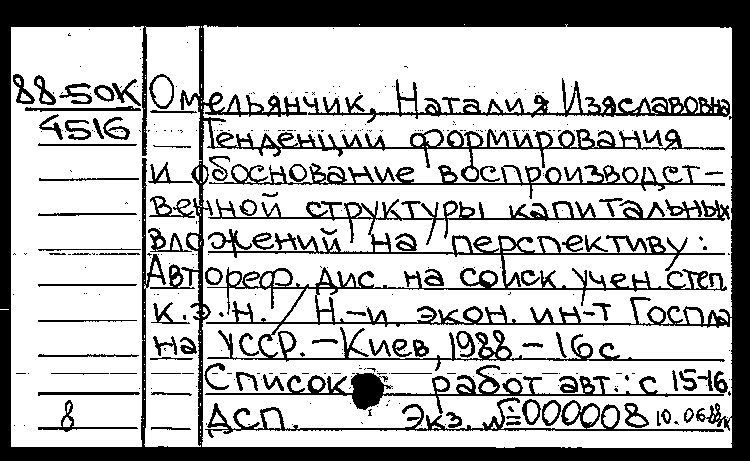 88-50К Омельянчик, Наталия Изяславовна
4516 Тенденции формирования
и обоснование воспроизводст-
венной структуры капитальных
вложений на перспективу:
Автореф. дис. на соиск. учен. степ.
к.э.н. / Н.-и. экон. ин-т Госпла
на УССР. – Киев, 1988. – 16 с.
Список работ авт.: с 15-16.
8 ДСП. Экз. № 000008 10.06.88